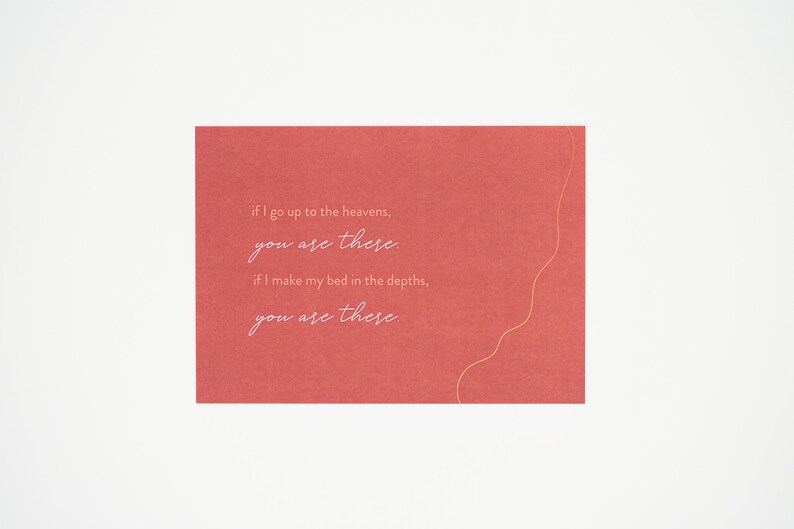 if I go up to the heavens,
you are there.
if I make my bed in the depths,
you are there.